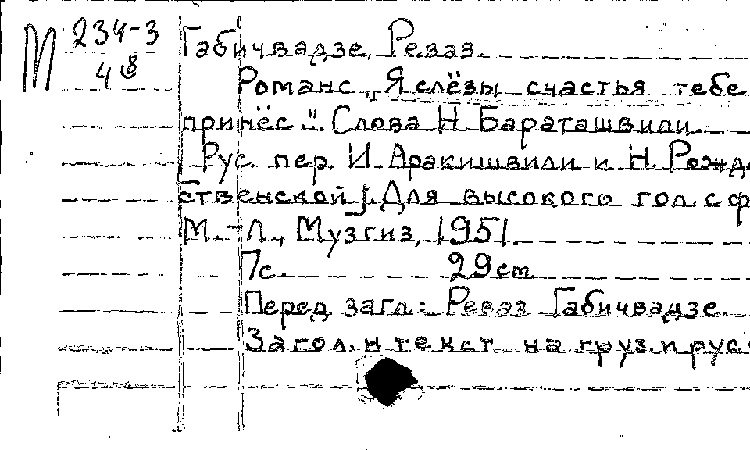 М 234-3
48
Габичвадзе, Реваз.
Романс „Я слёзы счастья тебе
принёс". Слова Н. Бараташвили
[Рус. пер. И. Аракишвили и Н. Рожде
ственской]. Для высокого гол. с ф
М.-Л., Музгиз, 1951.
7с. 29cm
Перед загл.: Реваз Габичвадзе.
Загол. и текст на груз. и рус